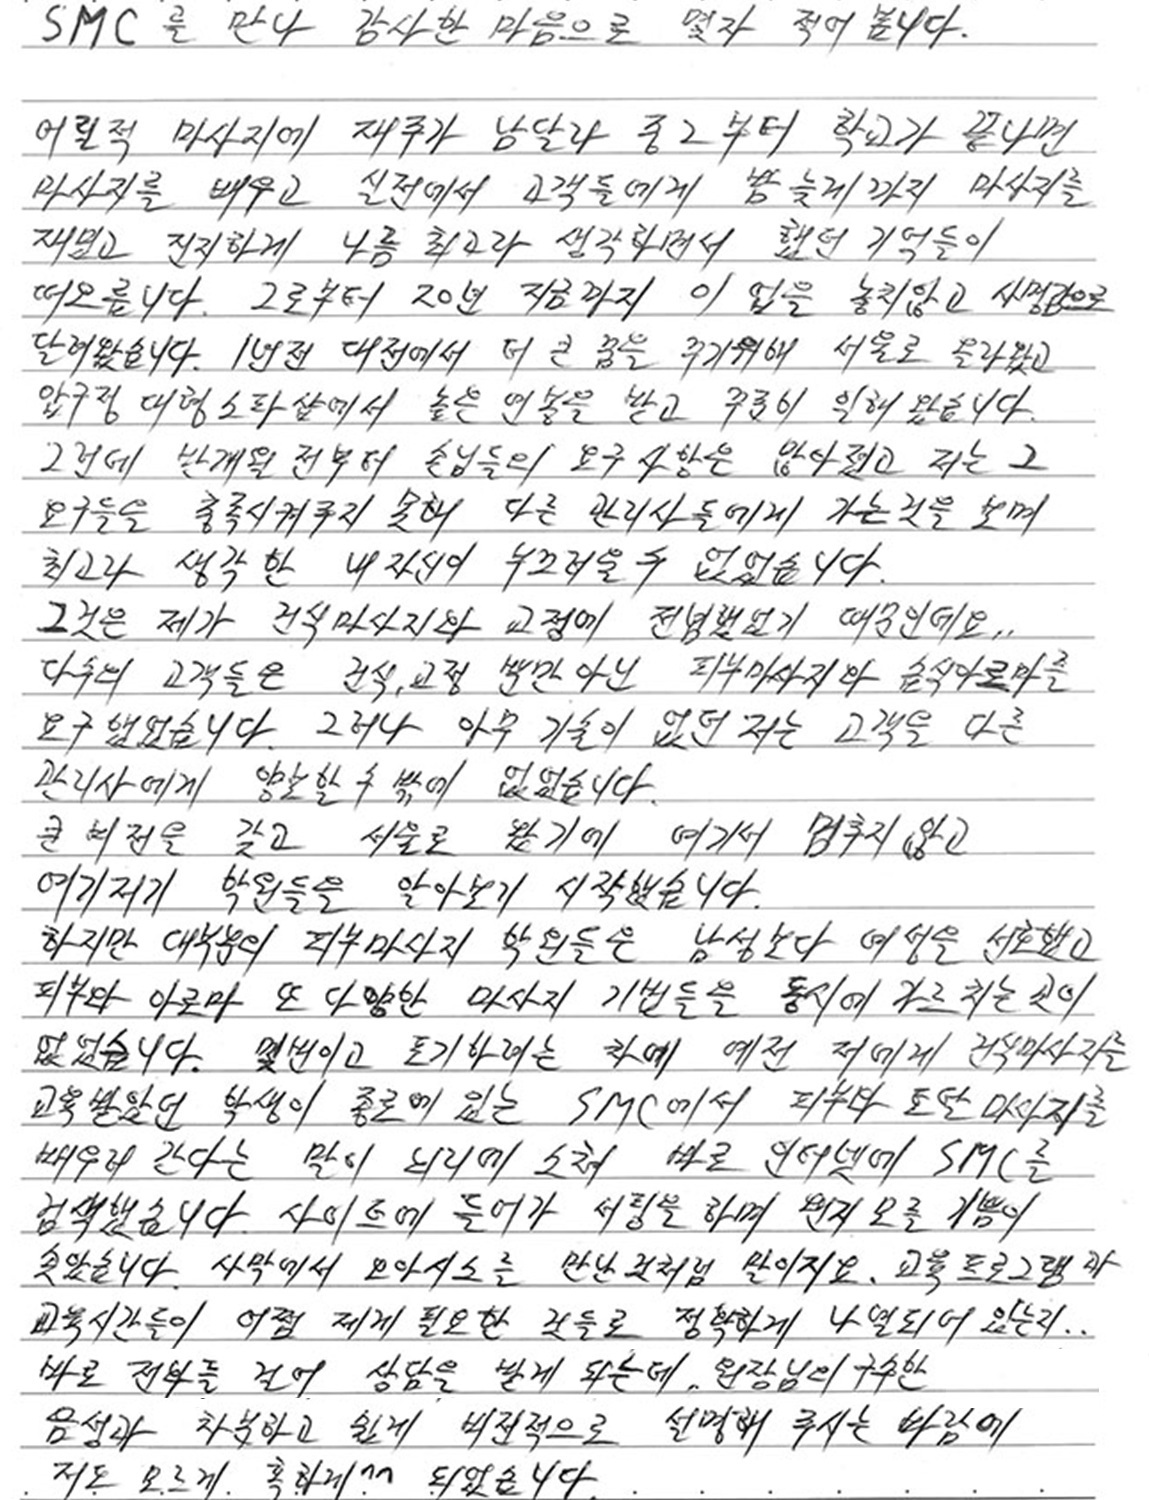 SMC를 만나 감사한 마음으로 몇자 적어 봅니다.
어릴적 마사지에 재주가 남달라 중2부터 학교가 끝나면
마사지를 배우고 실전에서 고객들에게 밤 늦게까지 마사지를
재밌고 진지하게 나름 최고라 생각하면서 했던 기억들이
떠오릅니다. 그로부터 20년 지금까지 이 업을 놓지않고 사명감으로
달려왔습니다. 1년전 대전에서 더 큰 꿈을 꾸기위해 서울로 올라왔고
압구정 대형스타샵에서 높은 연봉을 받고 꾸준히 일해 왔습니다.
그런데 반개월 전부터 손님들의 요구사항은 많아졌고 저는 그
요구들을 충족시켜주지 못해 다른 관리사들에게 가는것을 보며
최고라 생각한 내 자신이 부끄러울 수 없었습니다.
그것은 제가 건식마사지와 교정에 전념했었기 때문인데요..
다수의 고객들은 건식,교정 뿐만 아닌 피부마사지와 습식아로마를
요구했었습니다. 그러나 아무 기술이 없던 저는 고객을 다른
관리사에게 양보할 수 밖에 없었습니다.
큰 비전을 갖고 서울로 왔기에 여기서 멈추지 않고
여기저기 학원들을 알아보기 시작했습니다.
하지만 대부분의 피부마사지 학원들은 남성보다 여성을 선호했고
피부와 아로마 또 다양한 마사지 기법들을 동시에 가르치는 곳이
없었습니다. 몇번이고 포기하려는 차에 예전 저에게 건식마사지를
교육받았던 학생이 종로에 있는 SMC에서 피부와 또한 마사지를
배우러 간다는 말이 뇌리에 스쳐 바로 인터넷에 SMC를
검색했습니다. 사이트에 들어가 서핑을 하며 뭔지 모를 기쁨이
솟았습니다. 사막에서 오아시스를 만난 것처럼 말이지요. 교육프로그램과
교육시간들이 어쩜 제게 필요한 것들로 정확하게 나열되어 있는지..
바로 전화를 걸어 상담을 받게 되는데.. 원장님의 구수한
음성과 차분하고 쉽게 비전적으로 설명해 주시는 바람에
저도 모르게 혹하게^^ 되었습니다.